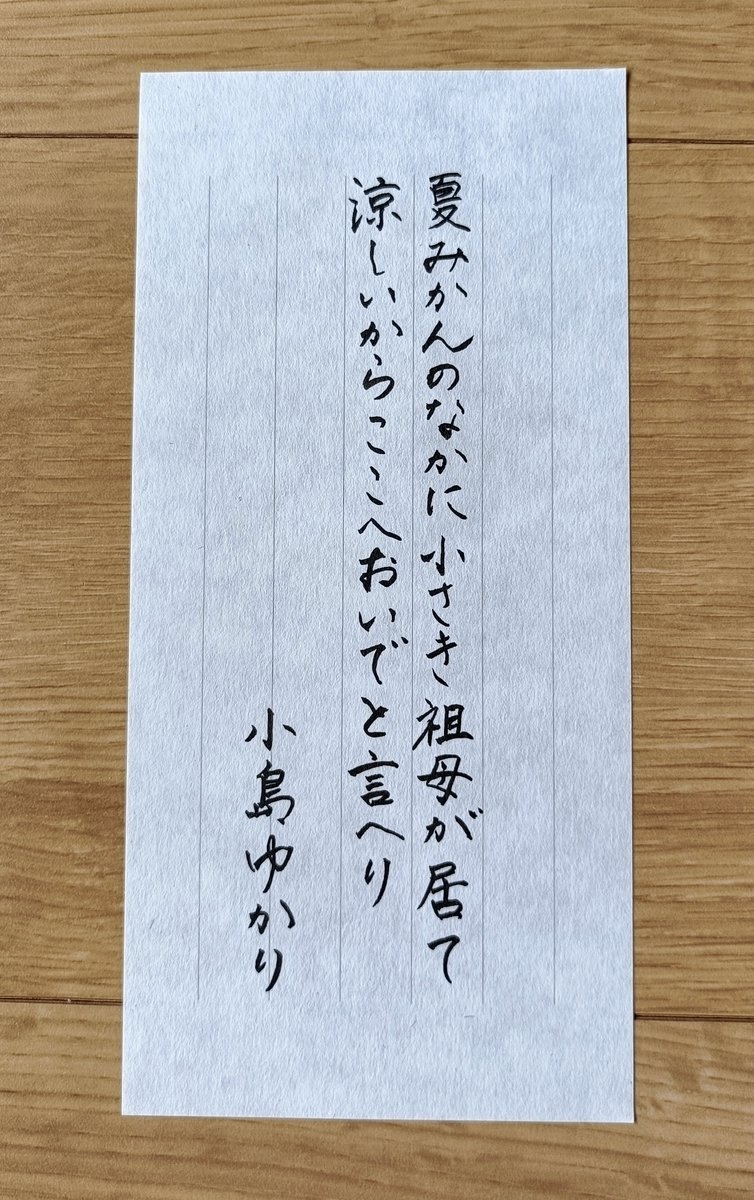 夏みかんのなかに小さき祖母が居て
涼しいからここへおいでと言へり
小島ゆかり